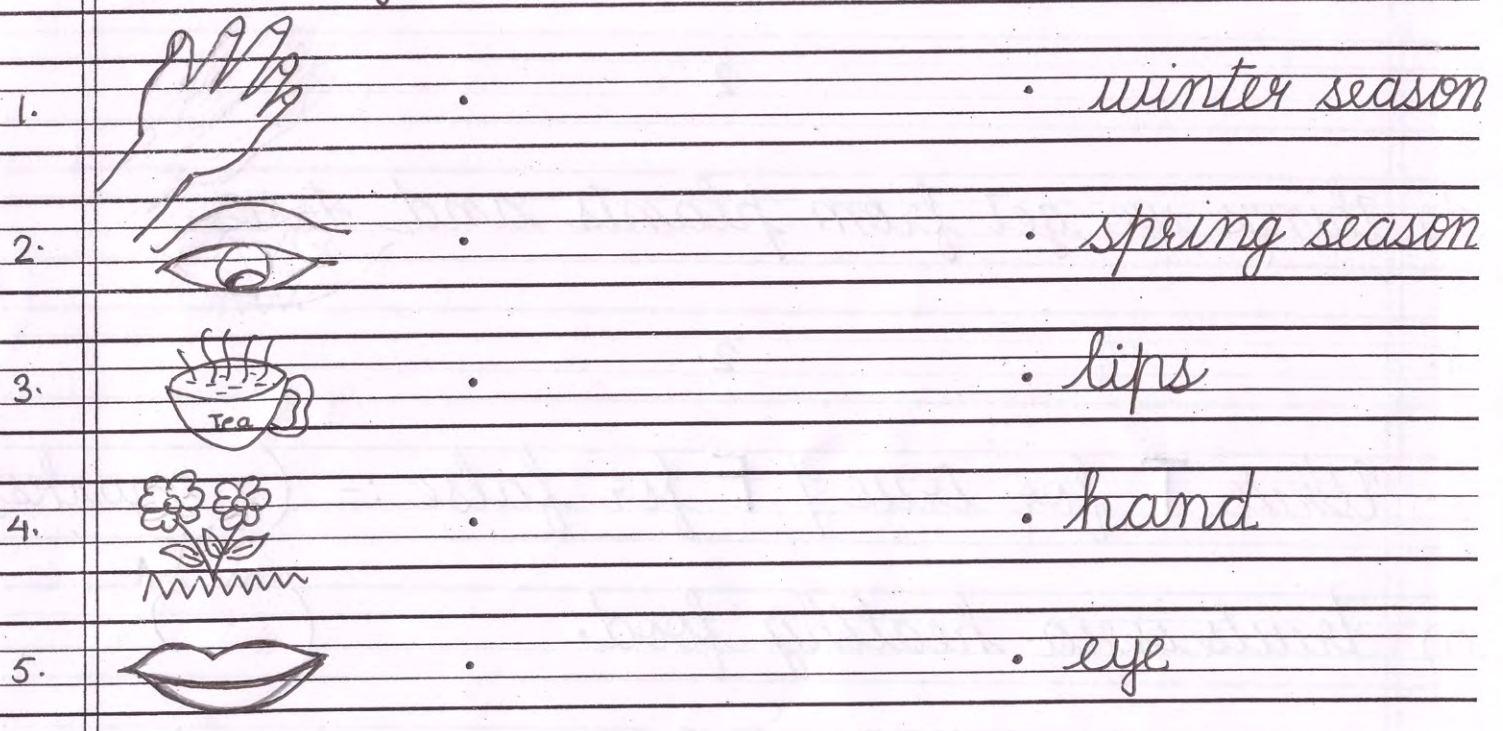 1. winter season
2. spring season
3. Tea lips
4. hand
5. eye